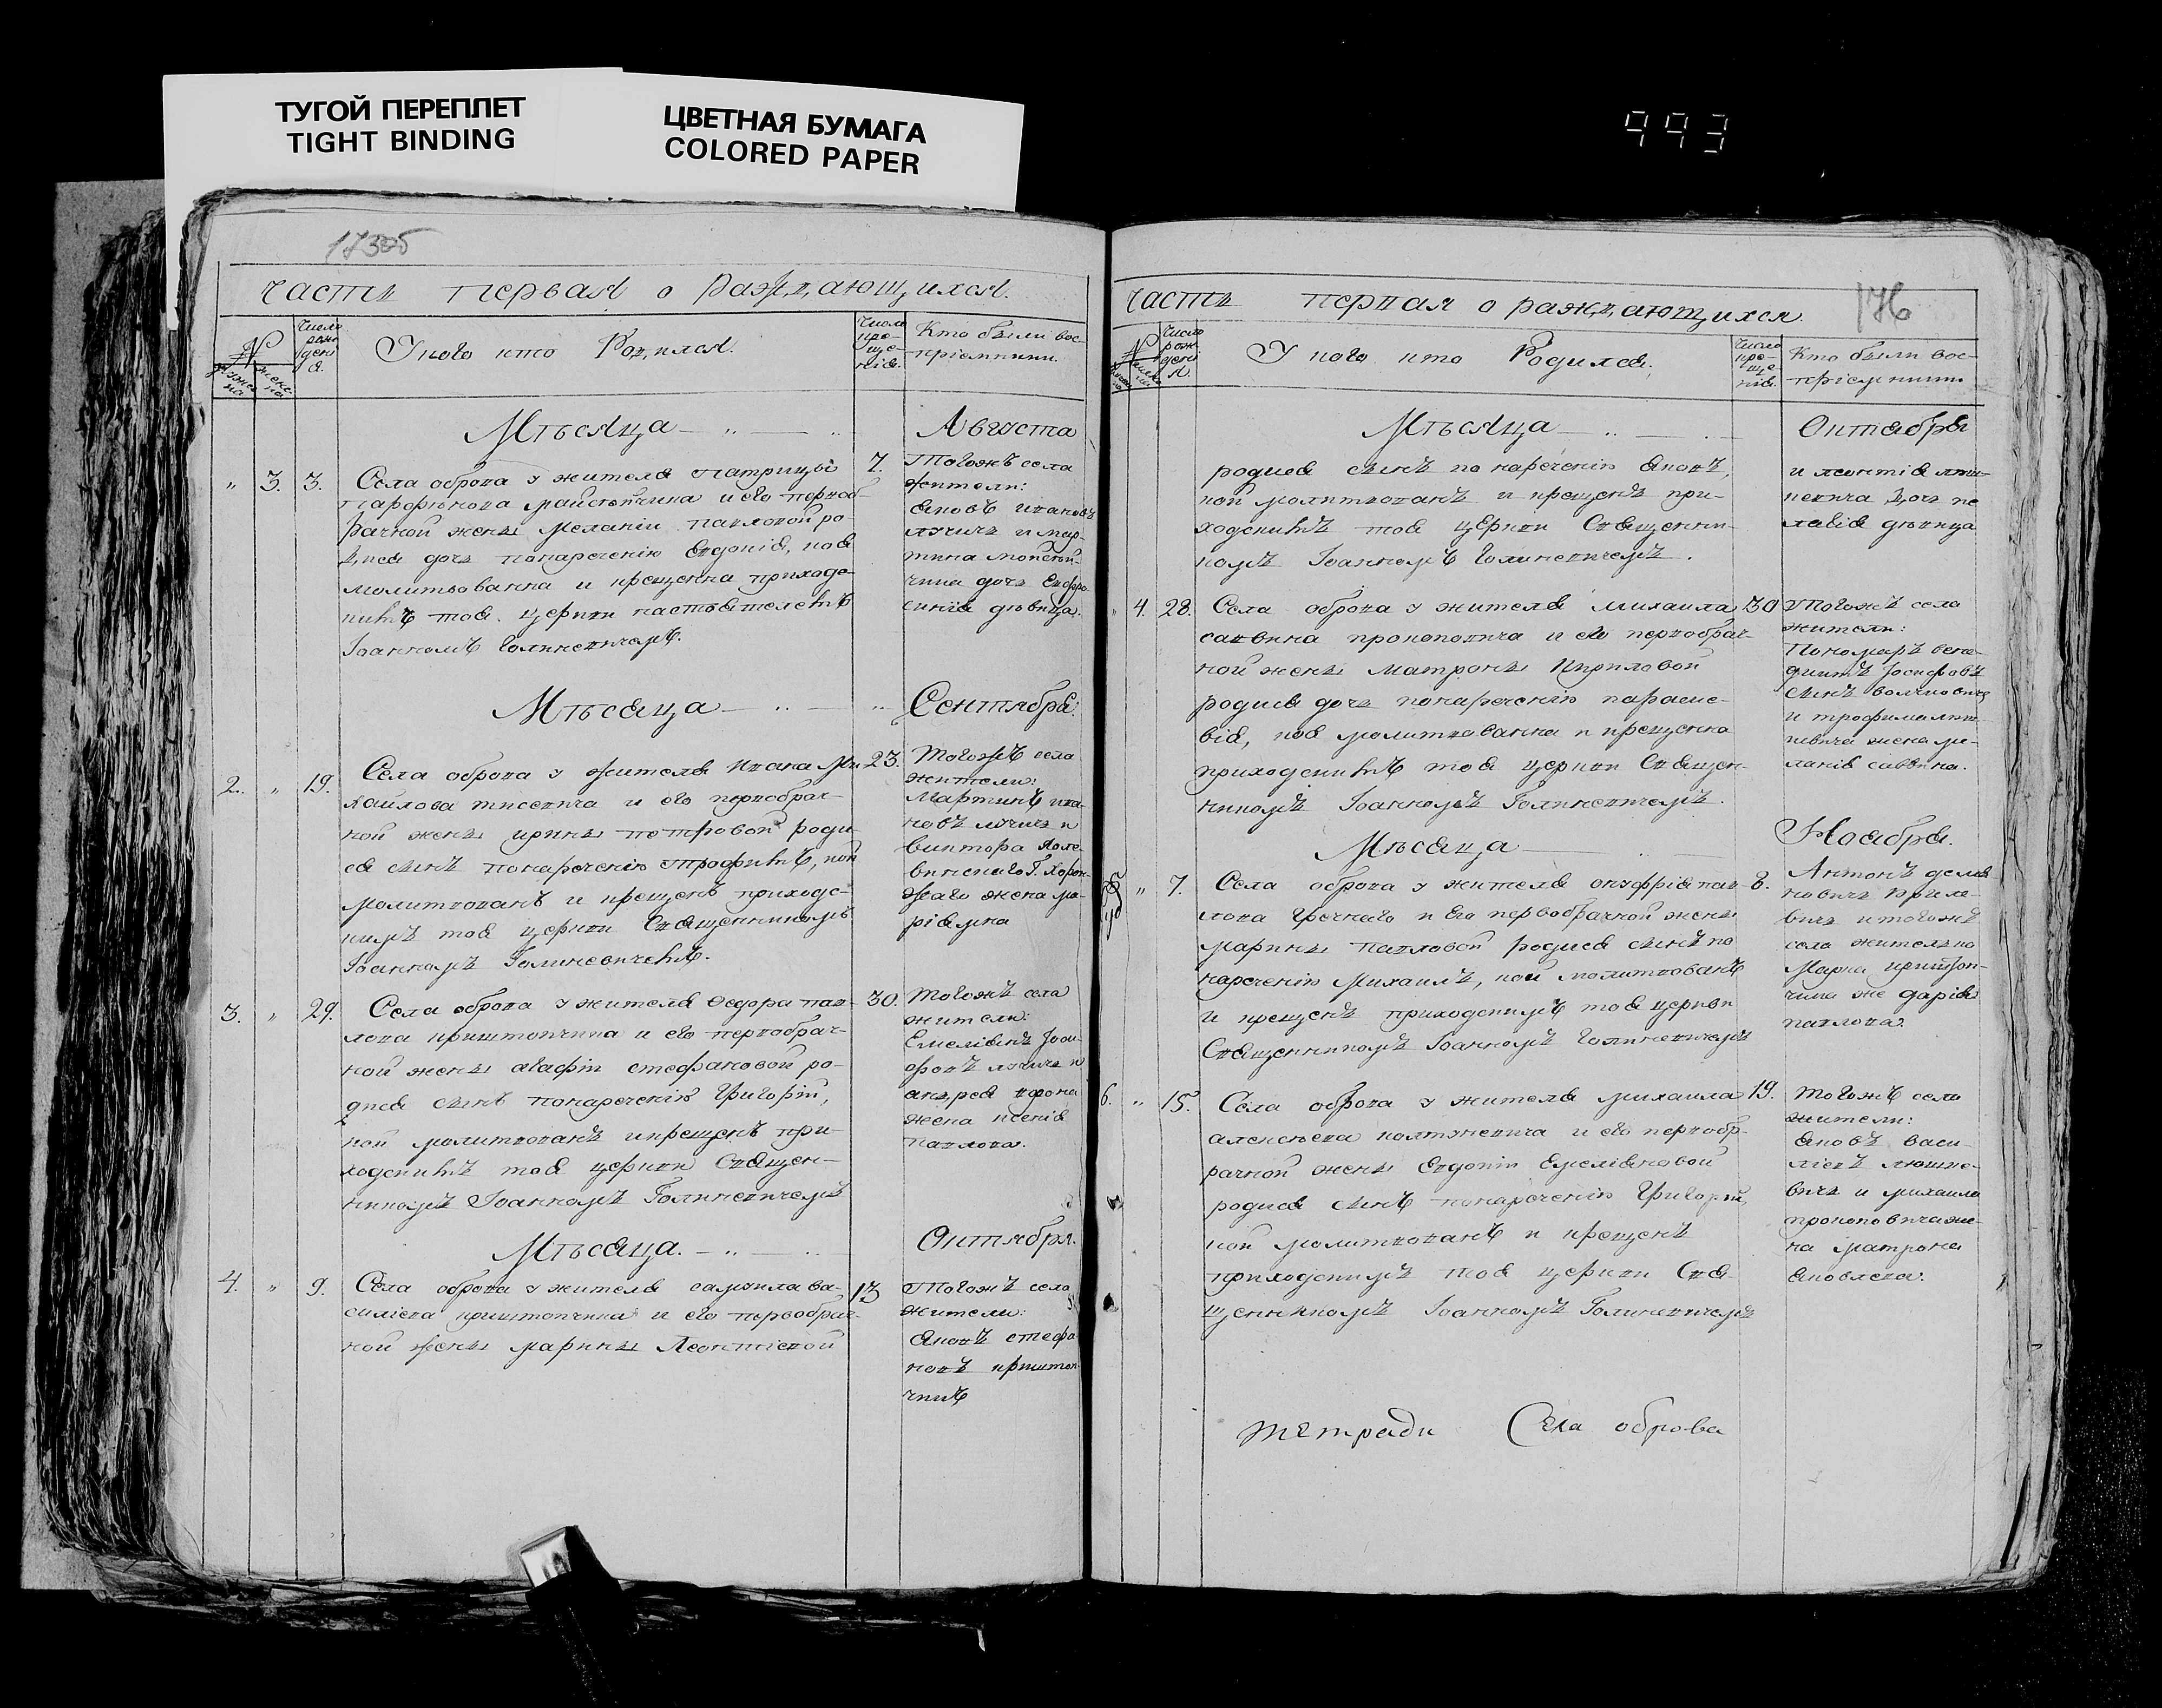 ТУГОЙ ПЕРЕПЛЕТ
TIGHT BINDING
ЦВЕТНАЯ БУМАГА
COLORED PAPER
993
часть первая о раждающихся.
№
Число рождения.
У кого кто Родился.
Число крещенія.
Кто были вос-
пріемники.
Мѣсяца Августа
" 3. 3. 7.
Села оброва у жителя Патрицы
и его первоб-
рачной жены Меланіи Павловой ро-
дися дочь понареченію Евдокія, коя
молитвованна и крещенна приходс-
кимъ тоя церкви настоятелемъ
Іоанномъ Голиневичемъ.
Тогожъ села
жители:
Яковъ Ивановъ
лучичь и мар-
тина
чика дочь Евфро-
синія дѣвица.
Мѣсяца Сентября.
2. " 19. 23.
Села оброва у жителя Ивана Ми-
хайлова тисевича и его первобрач-
ной жены ирины петровой роди-
ся сынъ понареченію Трофимъ, кой
молитвованъ и крещенъ приходс-
кимъ тоя церкви Священникомъ
Іоанномъ Голиневичемъ.
Тогожъ села
жители:
Мартинъ ива-
новъ лучичь и
виктора
жена ма-
ріямна
3. " 29. 30.
Села оброва у жителя Федора пав-
лова криштопчика и его первобрач-
ной жены агафіи стефановой ро-
дися сынъ понареченію Григорій,
кой молитвованъ и крещенъ при-
ходскимъ тоя церкви Священ-
никомъ Іоанномъ Голиневичемъ
Тогожъ села
жители:
Емеліянъ Іоси-
фовъ лучичь и
андрея
жена ксенія
павлова.
Мѣсяца. Октября.
4. " 9. 13
Села оброва у жителя самуила ва-
силіева криштопчика и его первобрач-
ной жены марины Леонтіевой
Тогожъ села
жители:
Яковъ стефа-
новъ криштоп-
чикъ
часть первая о раждающихся.
176
№
Число рожденія.
У кого кто Родился.
Число крещенія.
Кто были вос-
пріемники.
Мѣсяца Октября
родися сынъ по нареченію Яковъ,
кой молитвованъ и крещенъ при-
ходскимъ тоя церкви Священни-
комъ Іоанномъ Голиневичемъ.
и леонтія
дочь пе-
лагія дѣвица
" 4. 28. 30
Села оброва у жителя михаила
саввина прокоповича и его первобрач-
ной жены Матроны Кириловой
родися дочь понареченію параске-
вія, коя молитвованна и крещенна
приходскимъ тоя церкви Священ-
никомъ Іоанномъ Голиневичемъ.
Тогожъ села
жители:
Пономарь вене-
диктъ Іосифовъ
сынъ
и трофима
жена ме-
ланія саввина.
Мѣсяца Ноября.
" 7. 8.
Села оброва у жителя онуфрія пав-
лова Гречнаго и его первобрачной жены
марины павловой родися сынъ по
нареченію Михаилъ, кой молитвованъ
и крещенъ приходскимъ тоя церкви
Священникомъ Іоанномъ Голиневичемъ
Антонъ
и тогожъ
села жителька
Марка криштоп-
чика же дарія
павлова.
6. " 15. 19.
Села оброва у жителя михаила
алексѣева и его первоб-
рачной жены Евдокіи Емеліяновой
родися сынъ понареченію Григорій,
кой молитвованъ и крещенъ
приходскимъ тоя церкви Свя-
щенникомъ Іоанномъ Голиневичемъ
Тогожъ села
жители:
Яковъ васи-
ліевъ
и михаила
прокоповича же-
на матрона
Яковлева.
тетради Села оброва